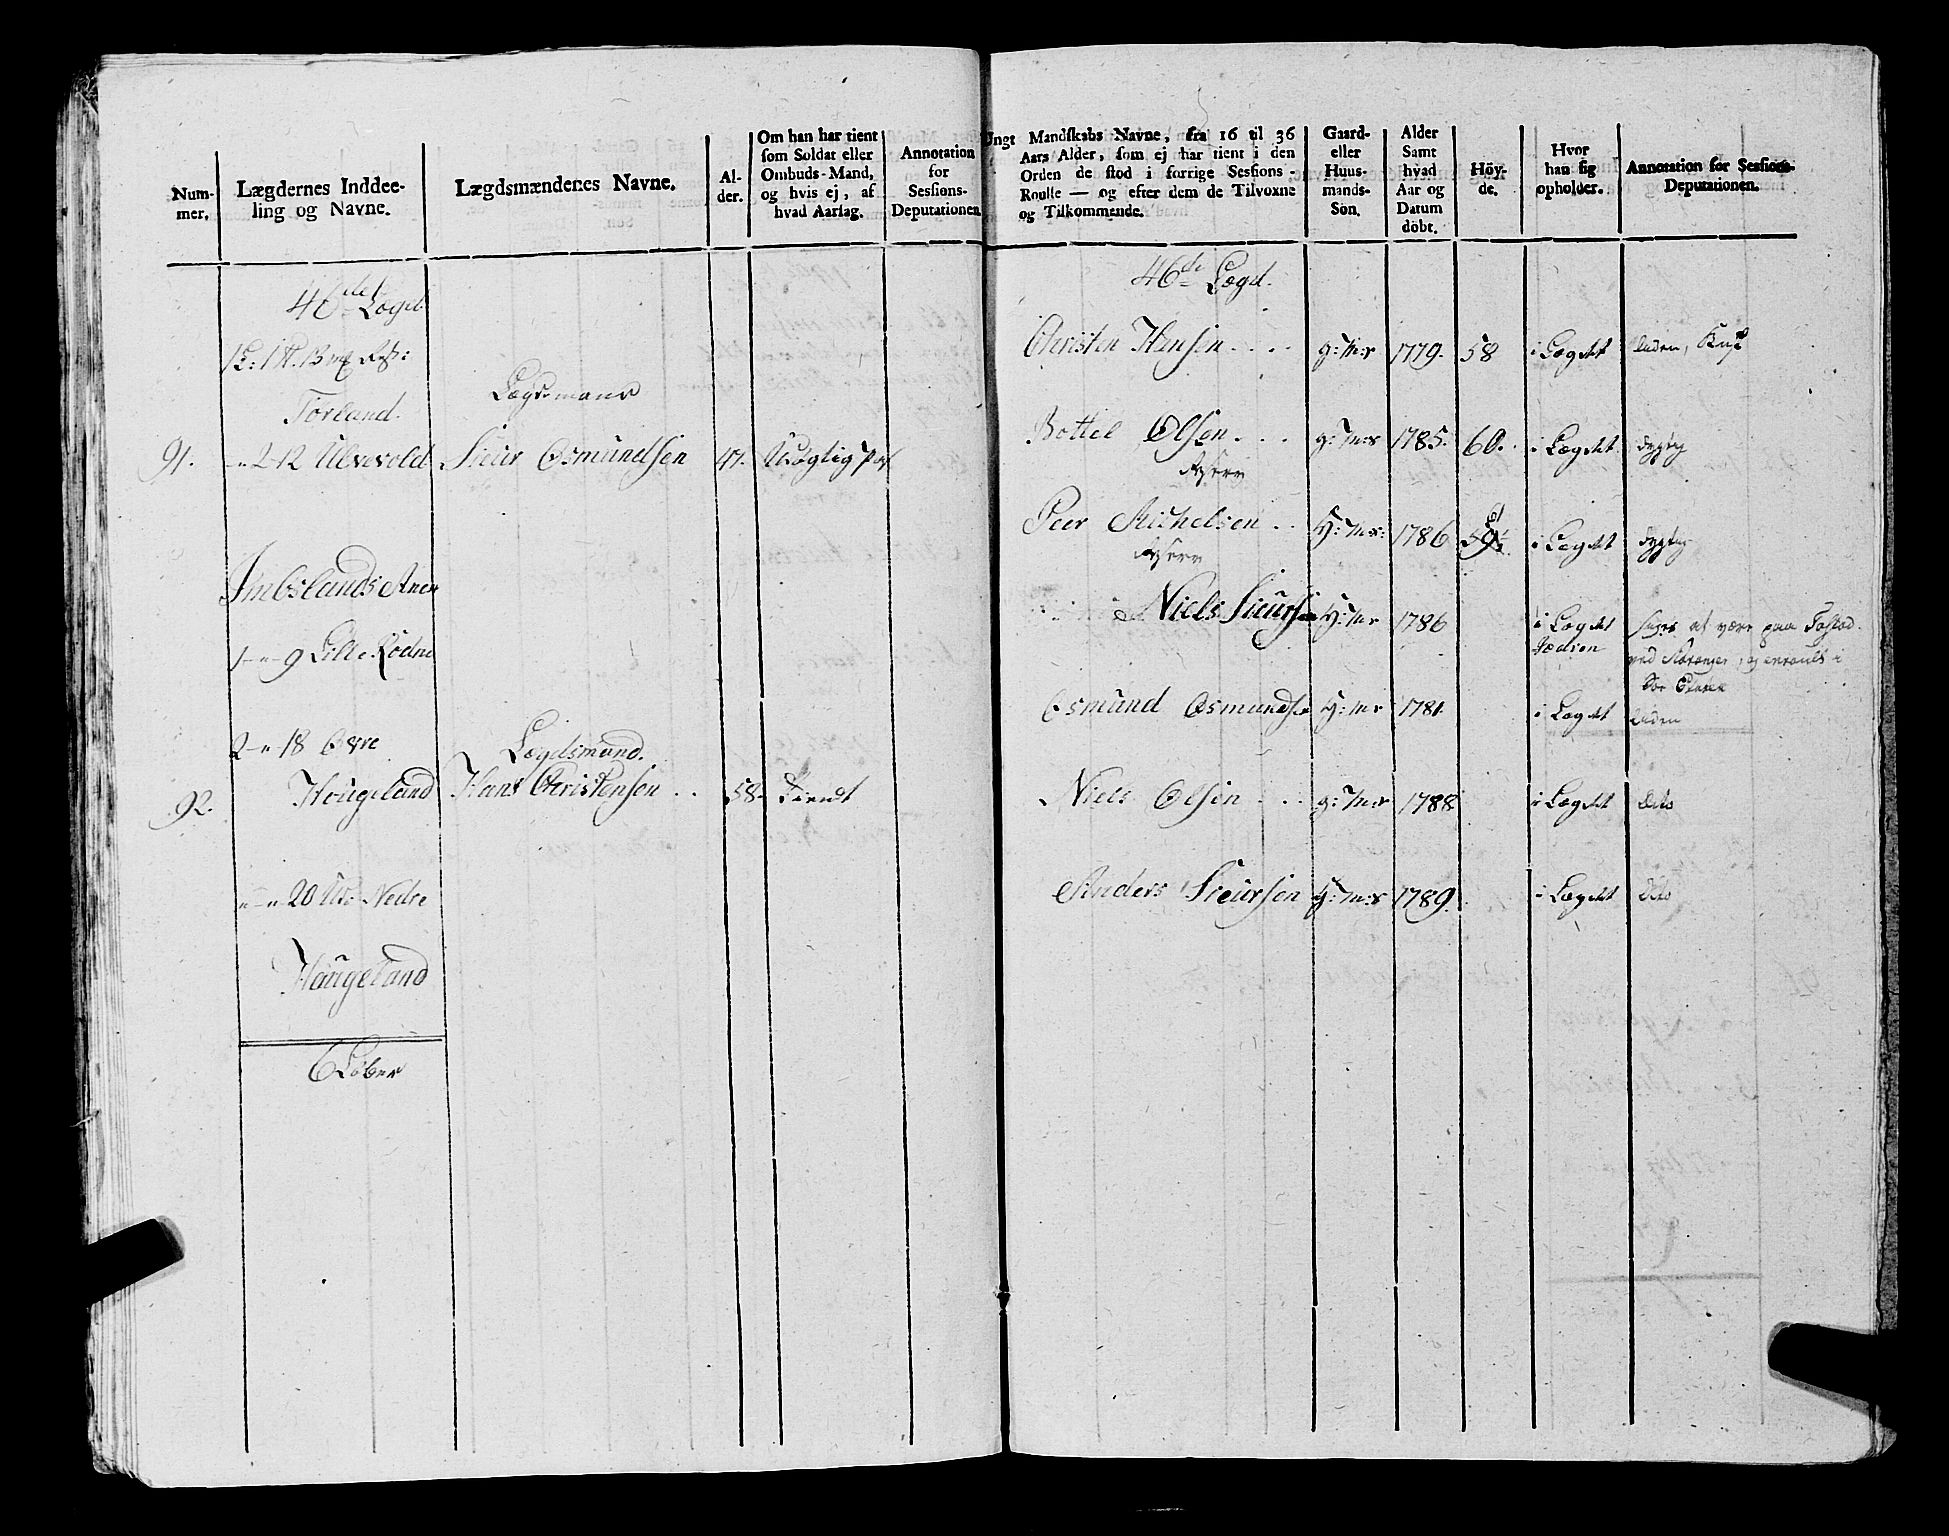 Num-
mer.
Lægdernes Inddee-
ling og Navne.
Lægdsmændenes Navne.
Al-
der.
Om han har tient
som Soldat eller
Ombuds-Mand,
og hvis ej, af
hvad Aarsag.
Annotation
for
Sessions-
Deputationen.
46de Lægd
1 13
Torland.
Lægdsmand
91. 2-12 Ulvevold Siur Osmundsen 47. Udygtig
Imbslands Anex
1-"-9 Lille Rødne
2-"-18 Øvre
Lægdsmand.
92. Hougeland Hans Christensen . . 58. tiendt
"-"-20 Nedre
Haugeland
6 Løber
Ungt Mandskabs Navne, fra 16 til 36
Aars Alder, som ej har tient i den
Orden de stod i forrige Sessions-
Roulle — og efter dem de Tilvoxne
og Tilkommende.
Gaard-
eller
Huus-
mands-
Sön.
Alder
Samt
hvad
Aar og
Datum
döbt.
Höy-
de.
Hvor
han sig
opholder.
Annotation for Sessions-
Deputationen.
46de Lægd.
Christen Hansen . . . . g: M:s 1779. 58 i Lægdet liden,
Bottel Olsen. . . . g: M:s 1785. 60. i Lægdet dygtig
Peer Michelsen . . H: M:s: 1786 59½ 61 i Lægdet dygtig
Niels Siursen H: M:s 1786 i Lægdet siges at være paa
ved Stavanger, og i
Osmund Osmundsen H: M:s 1781. i Lægdet liden
Niels Olsen . . . g: M:s 1788 i Lægdet dito
Anders Siursen H: M:s 1789. i Lægdet dito